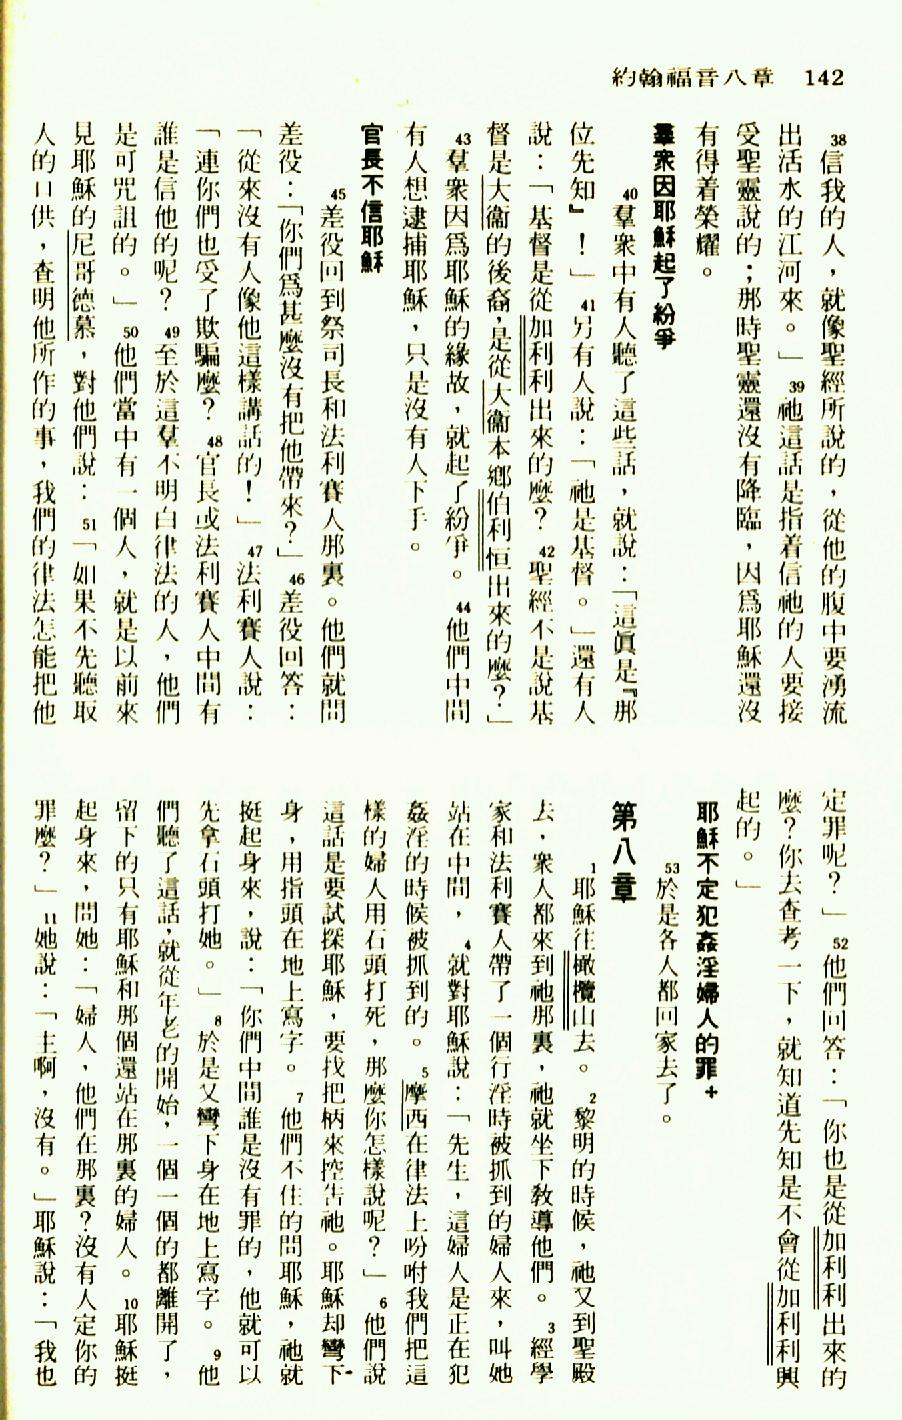 約翰福音八章　142
38信我的人，就像聖經所說的，從他的腹中要湧流
出活水的江河來。」39祂這話是指着信祂的人要接
受聖靈說的；那時聖靈還沒有降臨，因爲耶穌還沒
有得着榮耀。
羣衆因耶穌起了紛爭
40羣衆中有人聽了這些話，就說：「這眞是『那
位先知』！」41另有人說：「祂是基督。」還有人
說：「基督是從加利利出來的麼？42聖經不是說基
督是大衞的後裔，是從大衞本鄉伯利恒出來的麼？」
43羣衆因爲耶穌的緣故，就起了紛爭。44他們中間
有人想逮捕耶穌，只是沒有人下手。
官長不信耶穌
45差役回到祭司長和法利賽人那裏。他們就問
差役：「你們爲甚麼沒有把他帶來？」46差役回答：
「從來沒有人像他這樣講話的！」47法利賽人說：
「連你們也受了欺騙麼？48官長或法利賽人中間有
誰是信他的呢？49至於這羣不明白律法的人，他們
是可咒詛的。」50他們當中有一個人，就是以前來
見耶穌的尼哥德慕，對他們說：51「如果不先聽取
人的口供，查明他所作的事，我們的律法怎能把他
定罪呢？」52他們回答：「你也是從加利利出來的
麼？你去查考一下，就知道先知是不會從加利利興
起的。」
耶穌不定犯姦淫婦人的罪+
53於是各人都回家去了。
第八章
1耶穌往橄欖山去。2黎明的時候，祂又到聖殿
去，衆人都來到祂那裏，祂就坐下敎導他們。3經學
家和法利賽人帶了一個行淫時被抓到的婦人來，叫她
站在中間，4就對耶穌說：「先生，這婦人是正在犯
姦淫的時候被抓到的。5摩西在律法上吩咐我們把這
樣的婦人用石頭打死，那麼你怎樣說呢？」6他們說
這話是要試探耶穌，要找把柄來控告祂。耶穌却彎下
身，用指頭在地上寫字。7他們不住的問耶穌，祂就
挺起身來，說：「你們中間誰是沒有罪的，他就可以
先拿石頭打她。」8於是又彎下身在地上寫字。9他
們聽了這話，就從年老的開始，一個一個的都離開了，
留下的只有耶穌和那個還站在那裏的婦人。10耶穌挺
起身來，問她：「婦人，他們在那裏？沒有人定你的
罪麼？」11她說：「主啊，沒有。」耶穌說：「我也